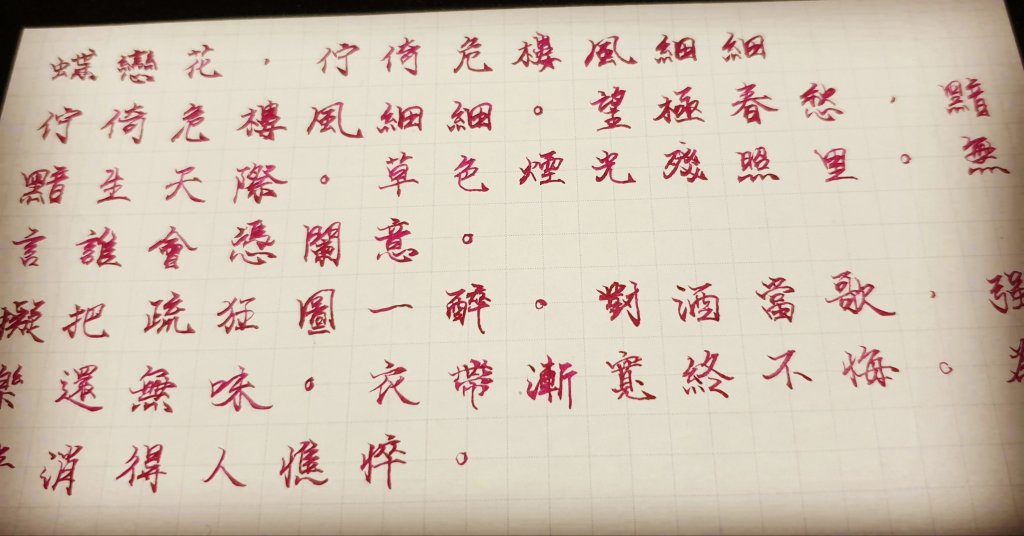 蝶戀花，佇倚危樓風細細
佇倚危樓風細細。望極春愁，黯
黯生天際。草色煙光殘照里。無
言誰會憑闌意。
擬把疏狂圖一醉。對酒當歌，强
樂還無味。衣帶漸寬終不悔。為
消得人憔悴。